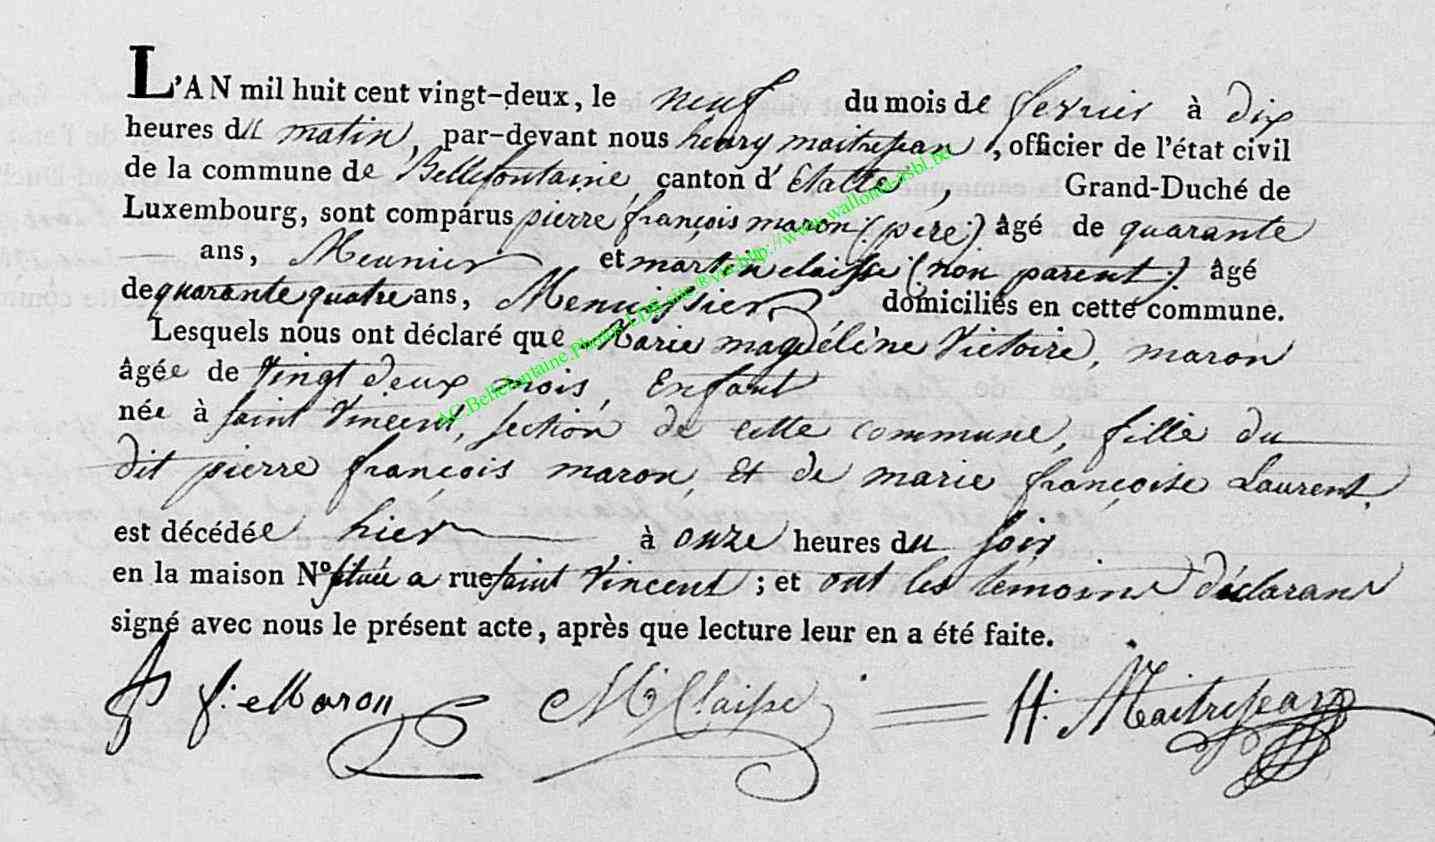 L'AN mil huit cent vingt-deux, le neuf du mois de fevrier à dix
heures du matin, par-devant nous henry maitrejean, officier de l'état civil
de la commune de Bellefontaine, canton d'Etalle, Grand-Duché de
Luxembourg, sont comparus pierre françois maron (père) âgé de quarante
ans, Meunier et martin claisse (non parent) âgé
de quarante quatre ans, Menuissier domiciliés en cette commune.
Lesquels nous ont déclaré que Marie magdéléne Victoire, maron
âgée de vingt deux mois, Enfant
née à saint Vincent, section de cette commune, fille du
dit pierre françois maron, et de marie françoise Laurent,
est décédée hier à onze heures du soir
en la maison N° située a rue saint Vincent ; et ont les témoins déclarans
signé avec nous le présent acte, après que lecture leur en a été faite.
f. Maron M Claisse H. Maitrejean